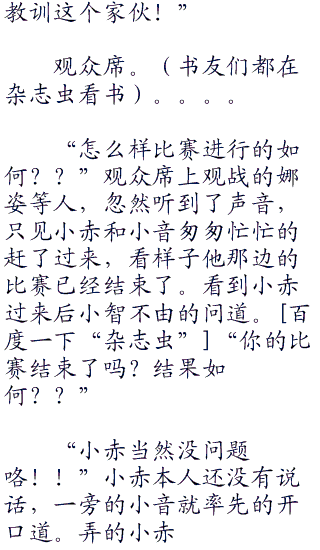 教训这个家伙！”
观众席。（书友们都在
杂志虫看书）。。。。
“怎么样比赛进行的如
何？？”观众席上观战的娜
姿等人，忽然听到了声音，
只见小赤和小音匆匆忙忙的
赶了过来，看样子他那边的
比赛已经结束了。看到小赤
过来后小智不由的问道。[百
度一下“杂志虫”]“你的比
赛结束了吗？结果如
何？？”
“小赤当然没问题
咯！！”小赤本人还没有说
话，一旁的小音就率先的开
口道。弄的小赤